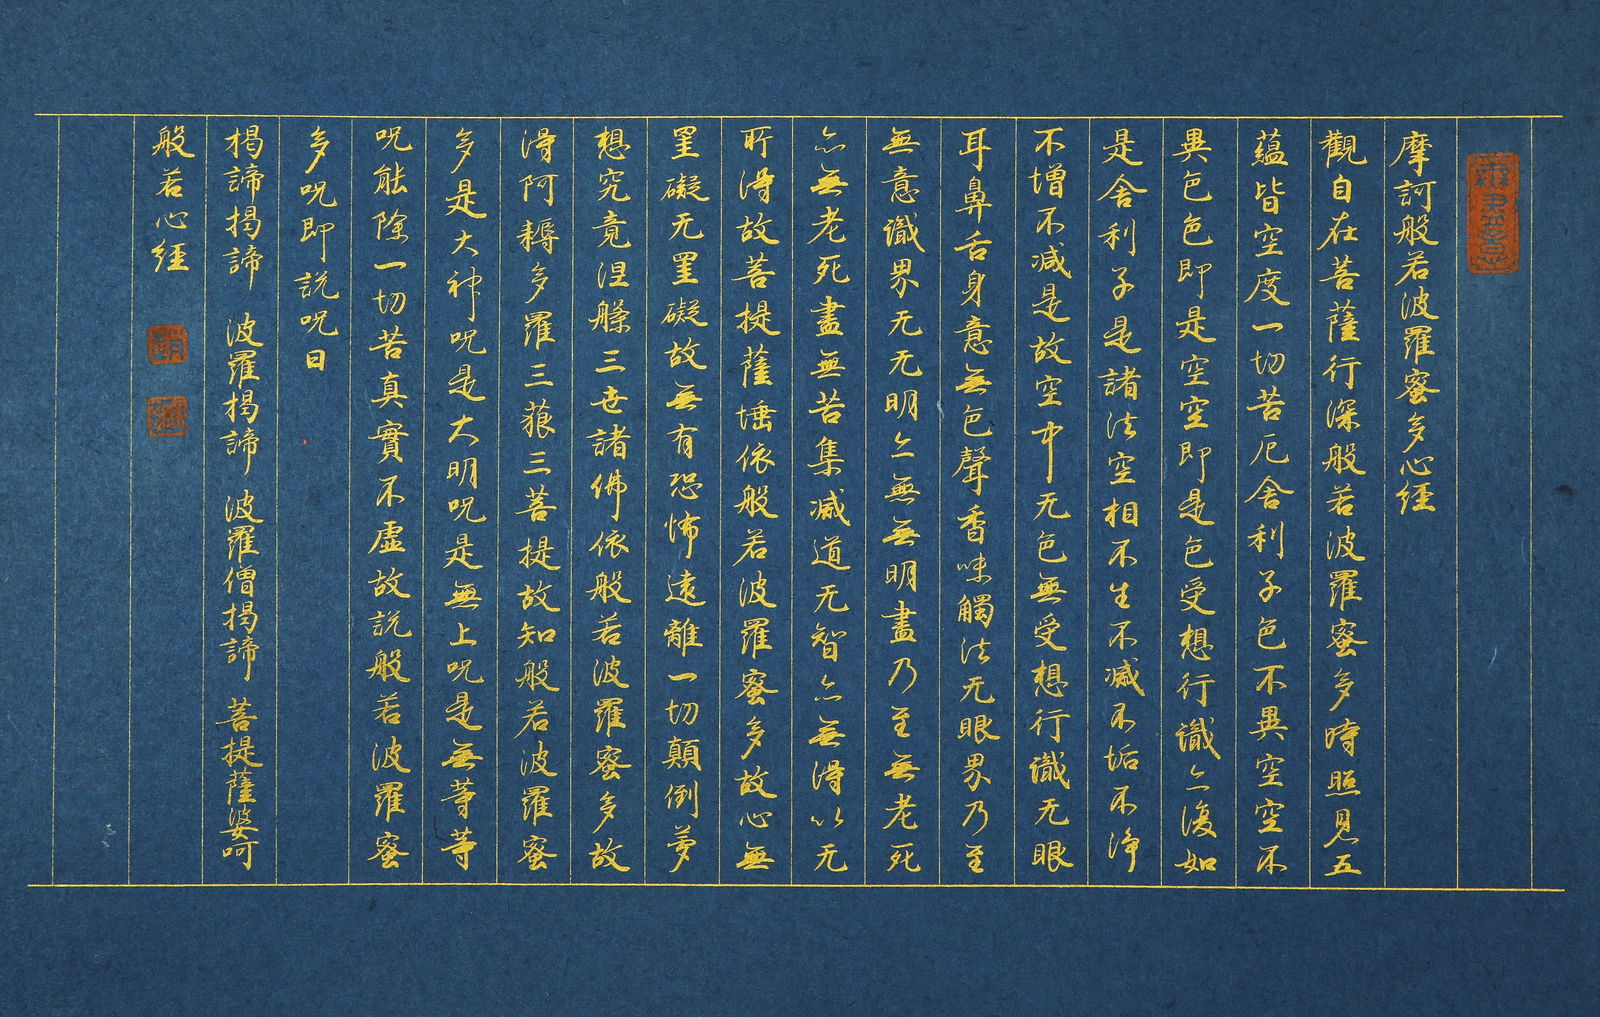 摩訶般若波羅蜜多心經
觀自在菩薩行深般若波羅蜜多時照見五
蘊皆空度一切苦厄舍利子色不異空空不
異色色即是空空即是色受想行識亦復如
是舍利子是諸法空相不生不滅不垢不淨
不增不減是故空中无色無受想行識无眼
耳鼻舌身意無色聲香味觸法无眼界乃至
無意識界无无明亦無無明盡乃至無老死
亦無老死盡無苦集滅道无智亦無得以无
所得故菩提薩埵依般若波羅蜜多故心無
罣礙无罣礙故無有恐怖遠離一切顛倒夢
想究竟涅槃三世諸佛依般若波羅蜜多故
得阿耨多羅三藐三菩提故知般若波羅蜜
多是大神呪是大明呪是無上呪是無等等
呪能除一切苦真實不虛故說般若波羅蜜
多呪即說呪曰
揭諦揭諦 波羅揭諦 波羅僧揭諦 菩提薩婆呵
般若心經